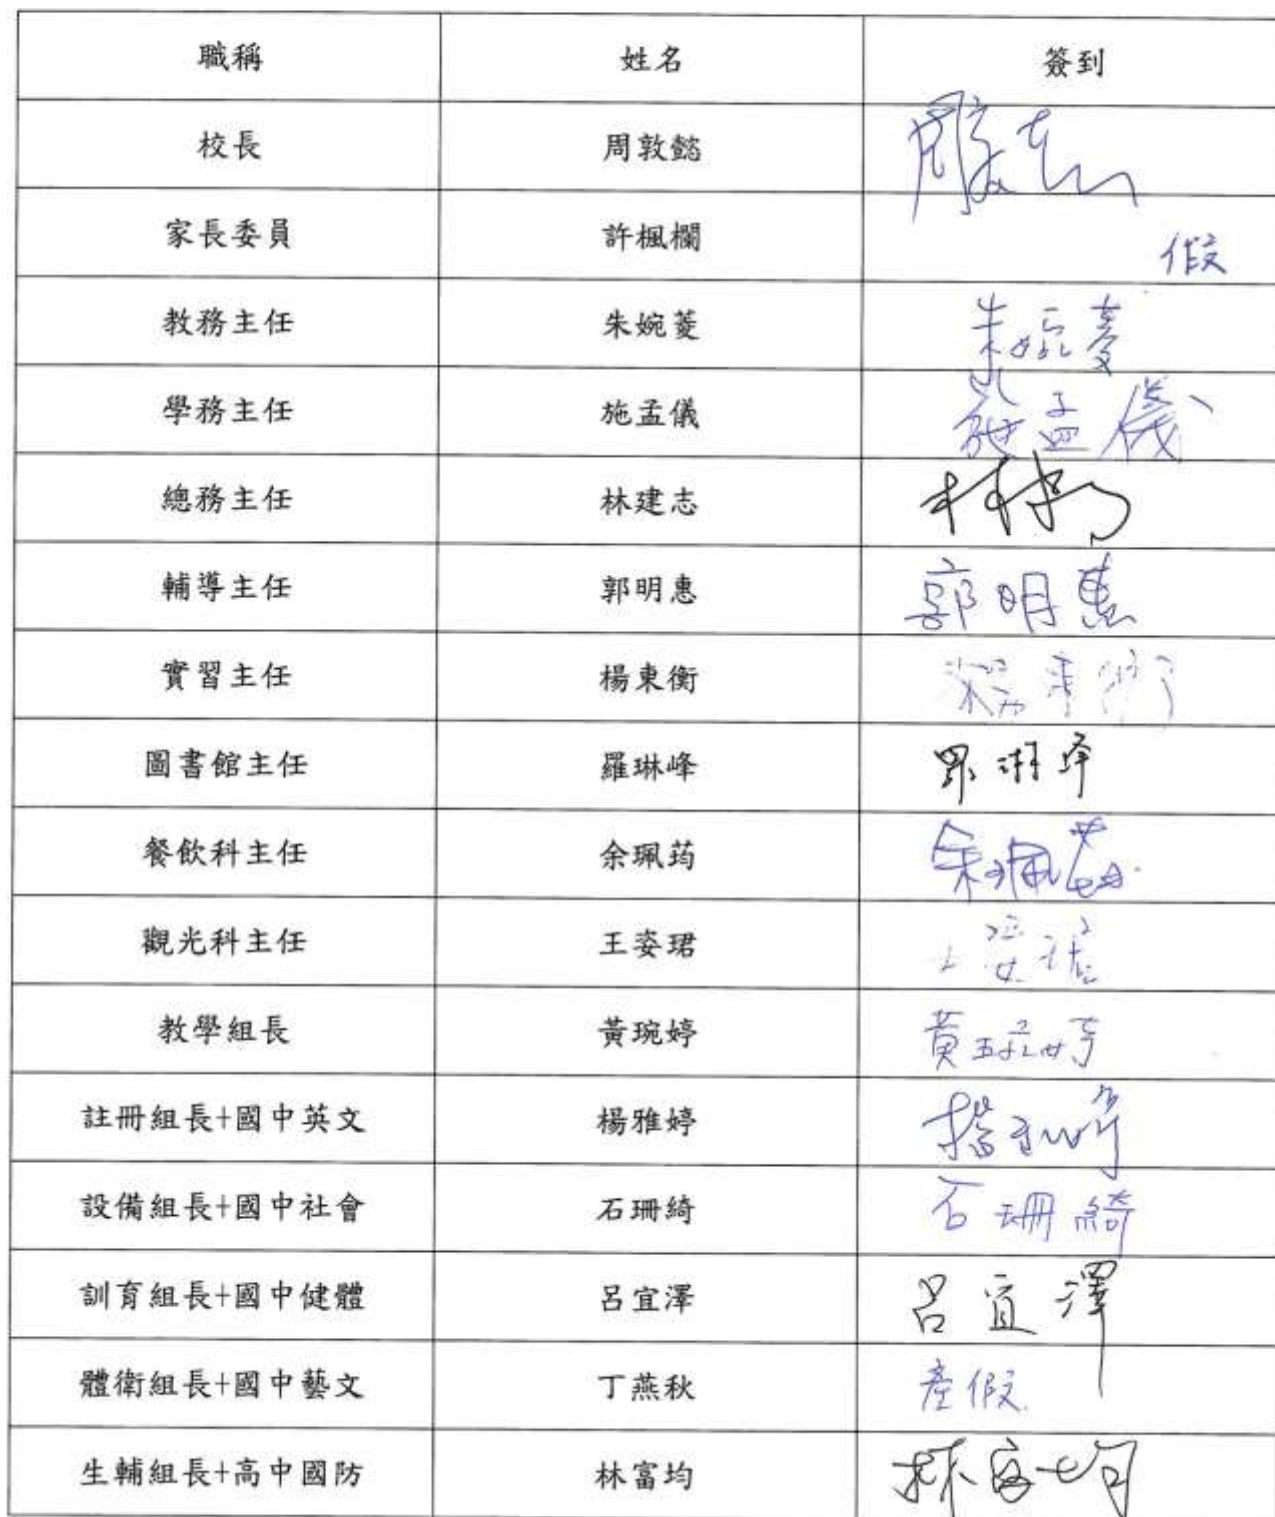 職稱 姓名 簽到
校長 周敦懿
家長委員 許楓欄 假
教務主任 朱婉菱 朱婉菱
學務主任 施孟儀 施孟儀
總務主任 林建志
輔導主任 郭明惠 郭明惠
實習主任 楊東衡 楊東衡
圖書館主任 羅琳峰
餐飲科主任 余珮筠 余珮筠
觀光科主任 王姿珺 王姿珺
教學組長 黃琬婷 黃琬婷
註冊組長+國中英文 楊雅婷 楊雅婷
設備組長+國中社會 石珊綺 石珊綺
訓育組長+國中健體 呂宜澤 呂宜澤
體衛組長+國中藝文 丁燕秋 產假
生輔組長+高中國防 林富均 林富均